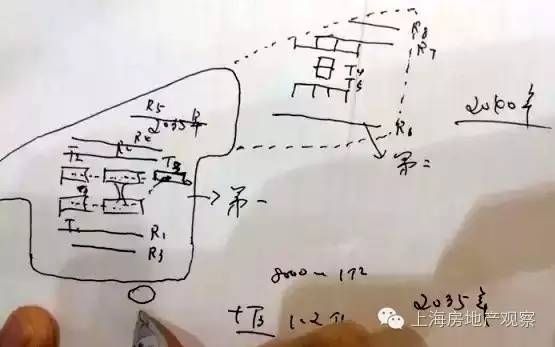 R8
R7
T4
T5
R6
第二
2040年
R5
2035年
R4
R2
T2
T3
第一
T1
R1
R3
2035年
+T3
上海房地产观察